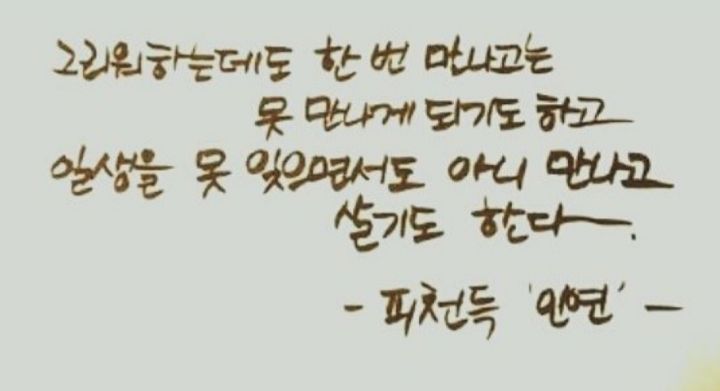 그리워하는데도 한 번 만나고는
못 만나게 되기도 하고
일생을 못 잊으면서도 아니 만나고
살기도 한다.
- 피천득 '인연' -